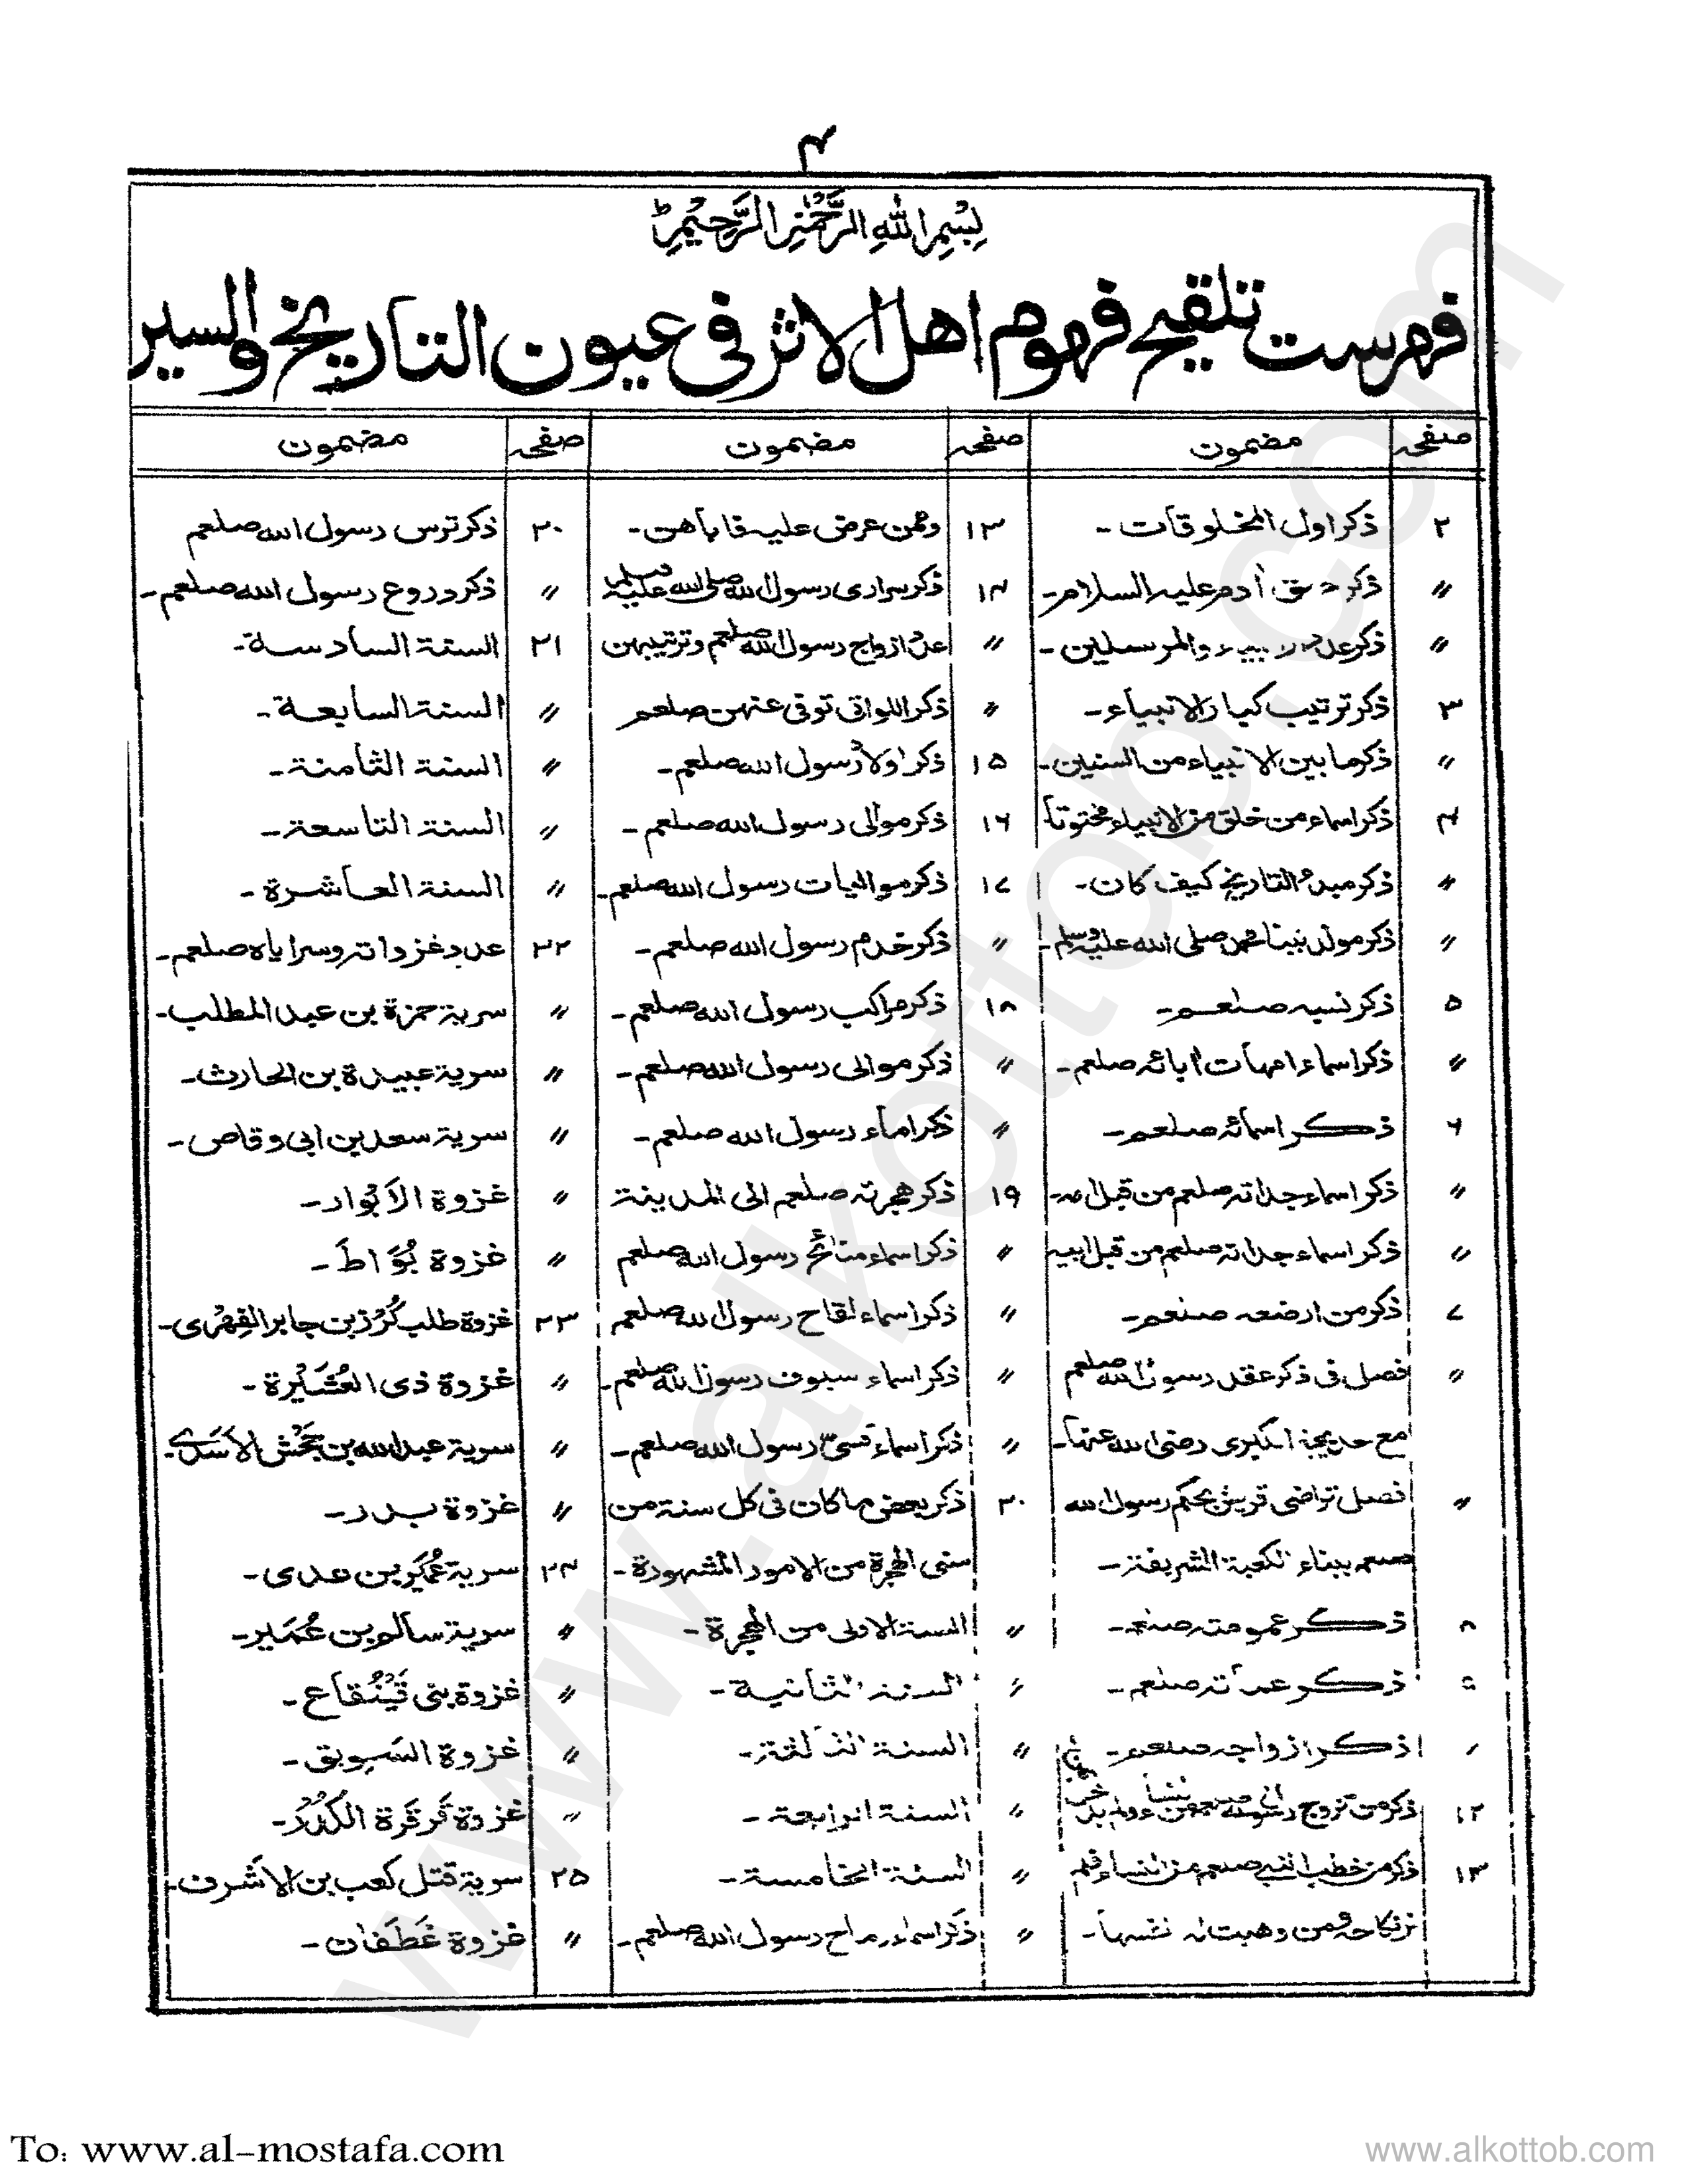 ۴
بِسْمِ اللهِ الرَّحْمٰنِ الرَّحِيْمِ
فهرست تلقيح فهوم اهل الاثر فی عيون التاريخ والسير
صفحہ مضمون صفحہ مضمون صفحہ مضمون
۲ ذكر اول المخلوقات-
〃 ذكر آدم عليه السلام-
〃 ذكر والمرسلين-
۳ ذكر ترتيب كبار الانبياء-
〃 ذكر ما بين الانبياء من السنين-
۴ ذكر اسماء من خلق من الانبياء مختوناً
〃 ذكر مبدء التاريخ كيف كان-
〃 ذكر مولد نبينا محمد صلى الله عليه وسلم-
۵ ذكر نسبه صلعم-
〃 ذكر اسماء امهات آبائه صلعم-
۶ ذكر اسمائه صلعم-
〃 ذكر اسماء جداته صلعم من قبل امه-
〃 ذكر اسماء جداته صلعم من قبل ابيه
۷ ذكر من ارضعه صلعم-
〃 فصل فی ذكر عقد رسول الله صلعم
مع خديجة الكبرى رضى الله عنها-
〃 فصل تراضى قريش بحكم رسول الله
صلعم ببناء الكعبة الشريفة-
۸ ذكر عمومته صلعم-
۹ ذكر عماته صلعم-
ذكر ازواجه صلعم-
۱۲ ذكر من تزوج
۱۳ ذكر من خطب النبى صلعم من النساء فلم
نكاحه ومن وهبت له نفسها-
۱۳ وممن عرض عليه فاباهن-
۱۴ ذكر سرارى رسول الله صلى الله عليه وسلم
〃 عدد ازواج رسول الله صلعم وترتيبهن
〃 ذكر اللواتى توفى عنهن صلعم
۱۵ ذكر اولاد رسول الله صلعم-
۱۶ ذكر موالى رسول الله صلعم-
۱۷ ذكر مواليات رسول الله صلعم-
〃 ذكر خدم رسول الله صلعم-
۱۸ ذكر مراكب رسول الله صلعم-
〃 ذكر موالى رسول الله صلعم-
〃 ذكر اماء رسول الله صلعم-
۱۹ ذكر هجرته صلعم الى المدينة
〃 ذكر اسماء منائح رسول الله صلعم
〃 ذكر اسماء لقاح رسول الله صلعم
〃 ذكر اسماء سيوف رسول الله صلعم-
〃 ذكر اسماء قسىّ رسول الله صلعم-
۲۰ ذكر بعض ما كان فی كل سنة من
سنى الهجرة من الامور المشهورة-
〃 السنة الاولى من الهجرة-
〃 السنة الثانية-
〃 السنة الثالثة-
〃 السنة الرابعة-
〃 السنة الخامسة-
〃 ذكر اسماء رماح رسول الله صلعم-
۲۰ ذكر ترس رسول الله صلعم
〃 ذكر دروع رسول الله صلعم-
۲۱ السنة السادسة-
〃 السنة السابعة-
〃 السنة الثامنة-
〃 السنة التاسعة-
〃 السنة العاشرة-
۲۲ عدد غزواته وسراياه صلعم-
〃 سرية حمزة بن عبد المطلب-
〃 سرية عبيدة بن الحارث-
〃 سرية سعد بن ابى وقاص-
〃 غزوة الاَبْواء-
〃 غزوة بُوَاطَ-
۲۳ غزوة طلب كُرْز بن جابر الفِهْرى-
〃 غزوة ذى العُشَيْرة-
〃 سرية عبد الله بن جَحْش الاَسَدى-
〃 غزوة بدر-
۲۴ سرية عُمَيْر بن عدى-
〃 سرية سالم بن عُمَير-
〃 غزوة بنى قَيْنُقاع-
〃 غزوة السَّوِيق-
〃 غزوة قَرْقَرة الكُدْر-
۲۵ سرية قتل كعب بن الاَشرف-
〃 غزوة غَطَفان-
www.alkottob.com
To: www.al-mostafa.com
www.alkottob.com